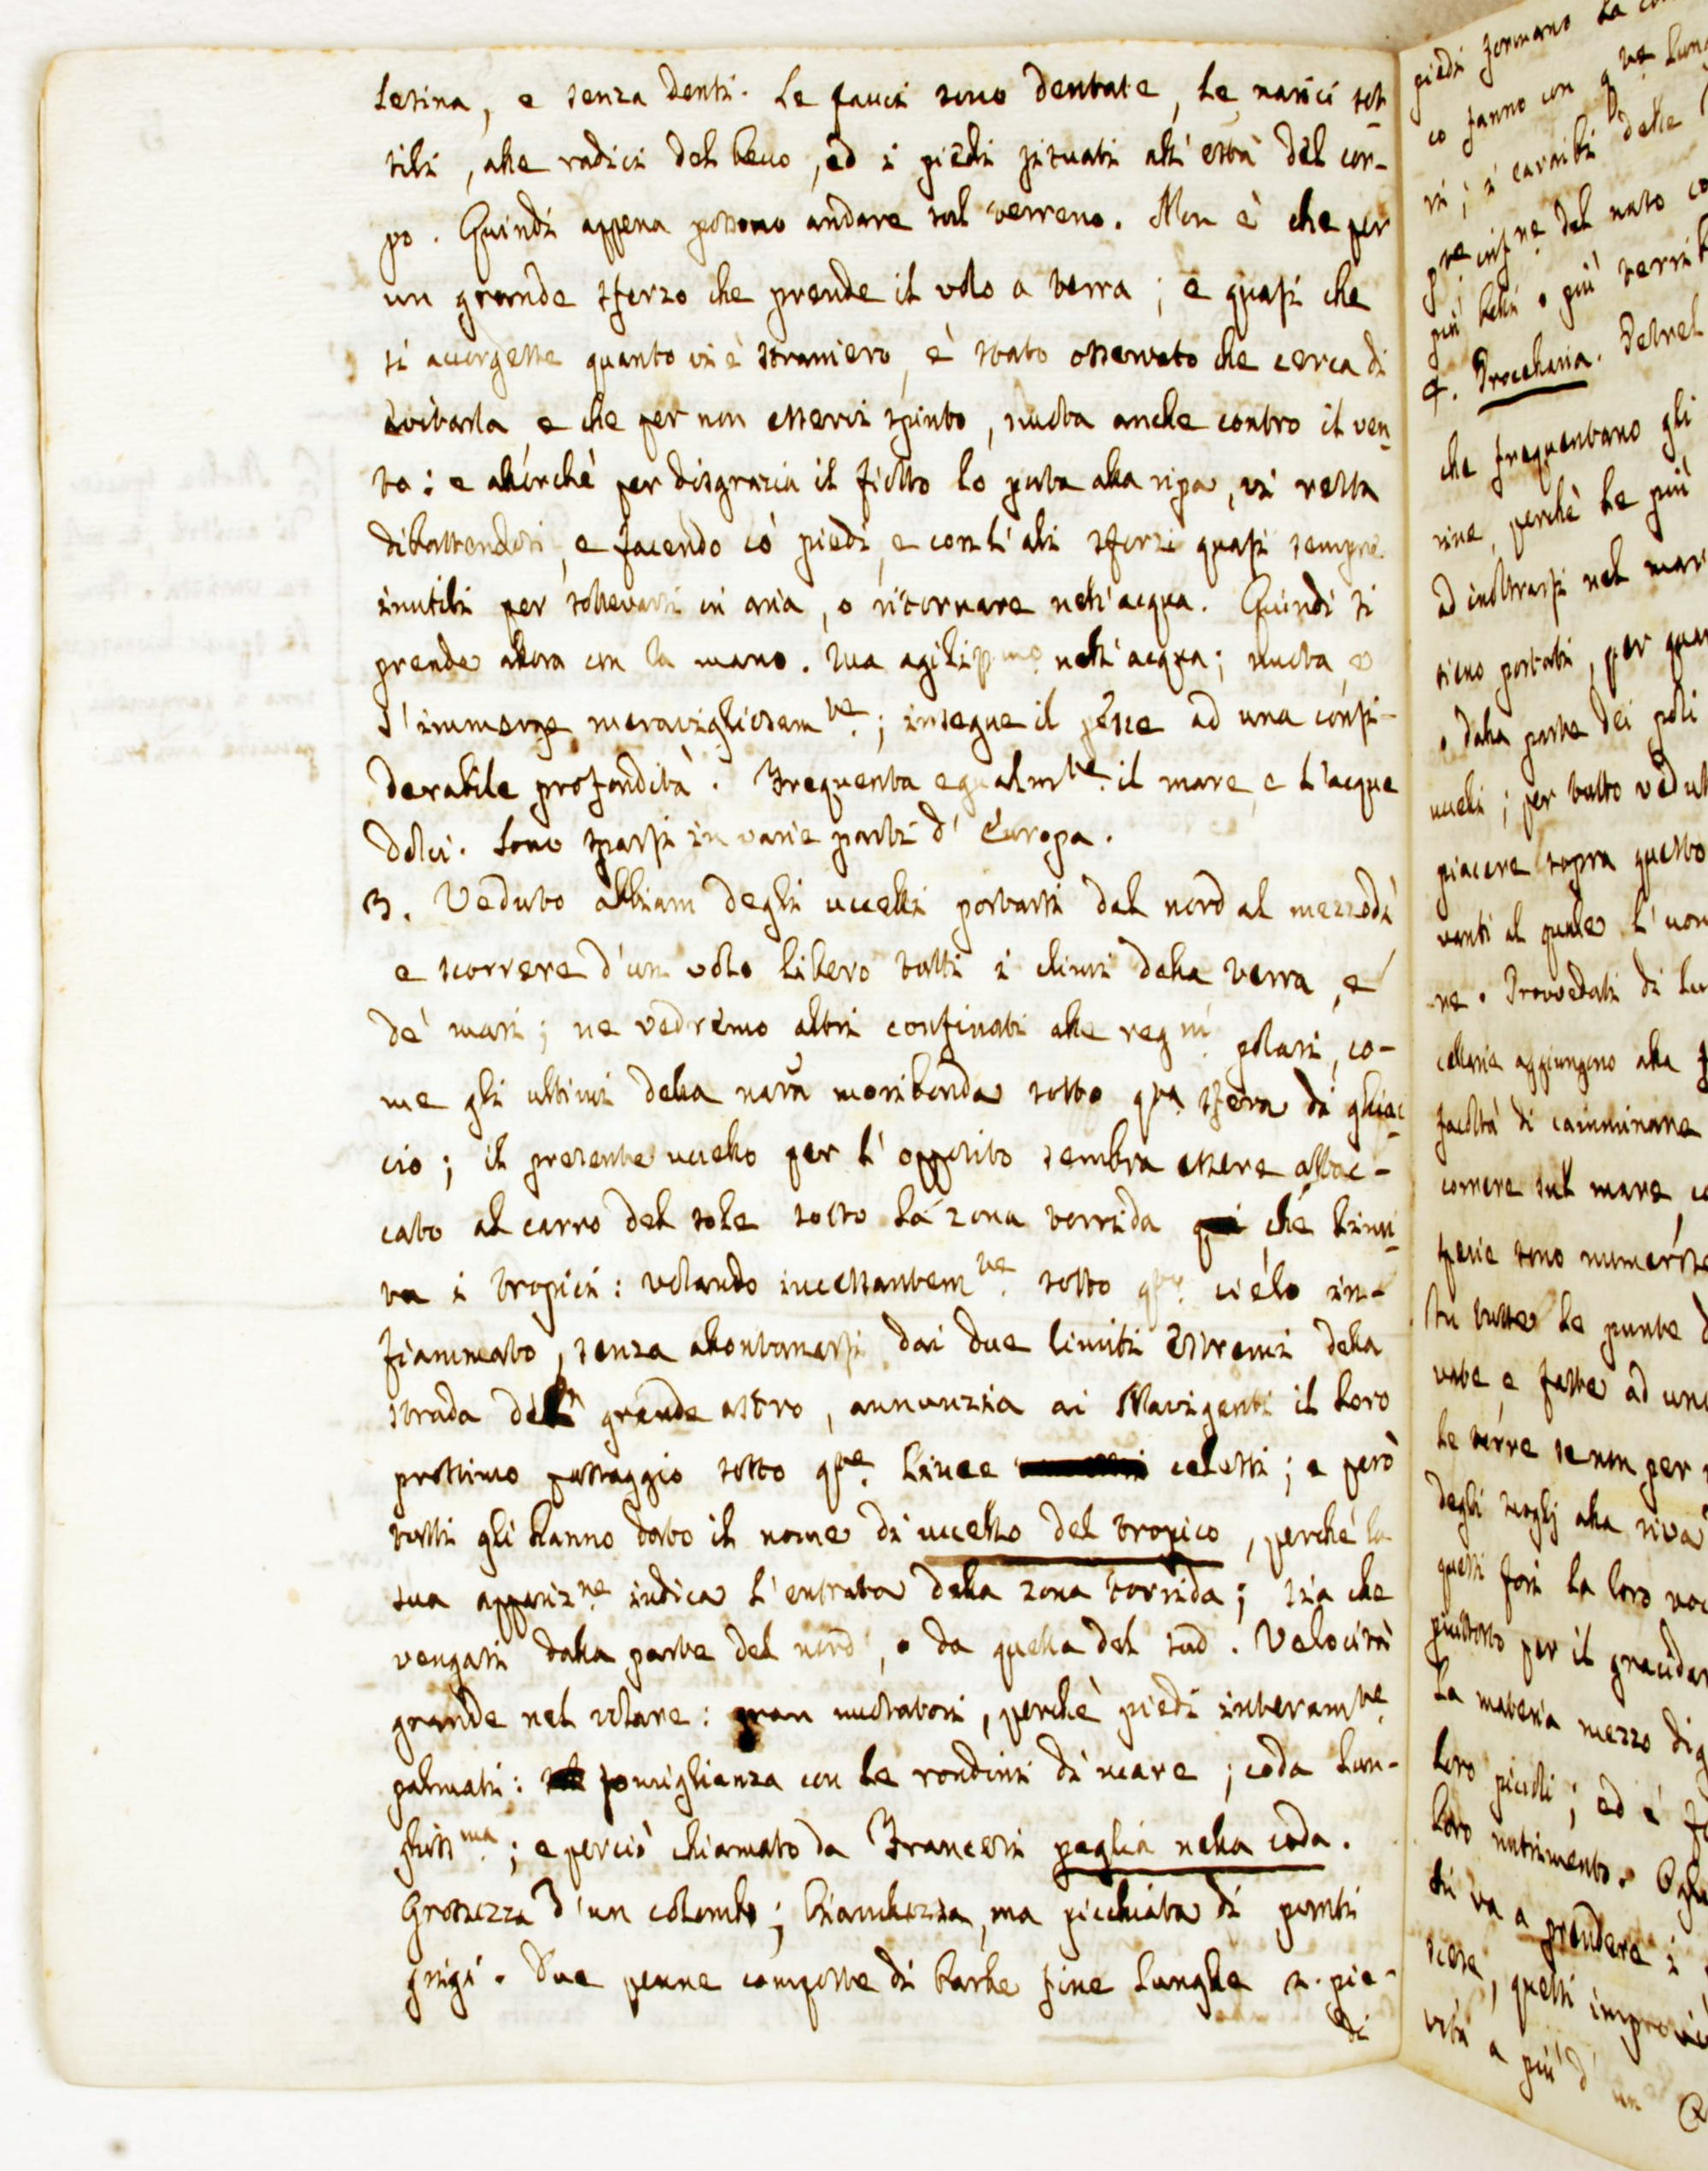 lesina, e senza denti. Le fauci sono dentate, le narici sot-
tili, alle radici del becco, ed i piedi situati all'està del cor-
po. Quindi appena possono andare sul terreno. Non è che per
un grande sforzo che prende il volo a terra; e quasi che
si accorgesse quanto vi è straniero, è stato osservato che cerca di
evitarla, e che per non esservi spinto, nuota anche contro il ven-
to: e allorchè per disgrazia il fiotto lo porta alla ripa, vi resta
dibattendosi, e facendo co' piedi, e con l'ali sforzi quasi sempre
inutili per sollevarsi in aria, o ritornare nell'acqua. Quindi si
prende allora con la mano. Sua agiliss.mo nell'acqua; nuota, e
s'immerge meravigliosam.te; insegue il pesce ad una consi-
derabile profondità. Frequenta egualm.te il mare, e l'acque
dolci. Sono sparsi in varie parti d'Europa.
3. Veduto abbiam degli uccelli portarsi dal nord al mezzodì
e scorrere d'un volo libero tutti i climi della terra, e
de' mari; ne vedremo altri confinati alle reg.ni polari, co-
me gli ultimi della nãra moribonda sotto q.ta sfera di ghiac-
cio; il presente uccello per l'opposito sembra essere attac-
cato al carro del sole sotto la zona torrida che limi-
ta i tropici: volando incessantem.te sotto q.to cielo in-
fiammato, senza allontanarsi dai due limiti estremi della
strada del grande astro, annunzia ai Naviganti il loro
prossimo passaggio sotto q.te linee celesti; e però
tutti gli hanno dato il nome di uccello del tropico, perchè la
sua appariz.ne indica l'entrata della zona torrida; sia che
vengasi dalla parte del nord, o da quella del sud. Velocità
grande nel volare: gran nuotatori, perchè piedi interam.te
palmati: somiglianza con le rondini di mare; coda lun-
ghiss.ma; e perciò chiamato da Francesi paglia nella coda.
Grossezza d'un colombo; bianchezza, ma picchiata di punti
grigi. Due penne composte di barbe fine lunghe 2. pie-
di
piedi formano la
co fanno con q.te lung
ri; i caraibi delle
del naso
più belli o più terrib
4. Procellaria. Petrel
che frequentano gli
rine, perchè le più
ad inoltrarsi nel mar
sieno portati, per quan
o dalla parte dei poli
uccelli; per tutto vedut
piacere sopra questo
vanti al quale l'uom
ne. Provveduti di lun
cellarie aggiungono alla
facoltà di camminare
correre sul mare, co
specie sono numerose
tutte le punte d
vate, e fatte ad un
le terre se non per
degli scoglj alla riva
questi fori la loro voc
piuttosto per il gracidar
La materia mezzo dig
loro piccoli; ed è
loro nutrimento.
va a prendere i
questi
a più d'un